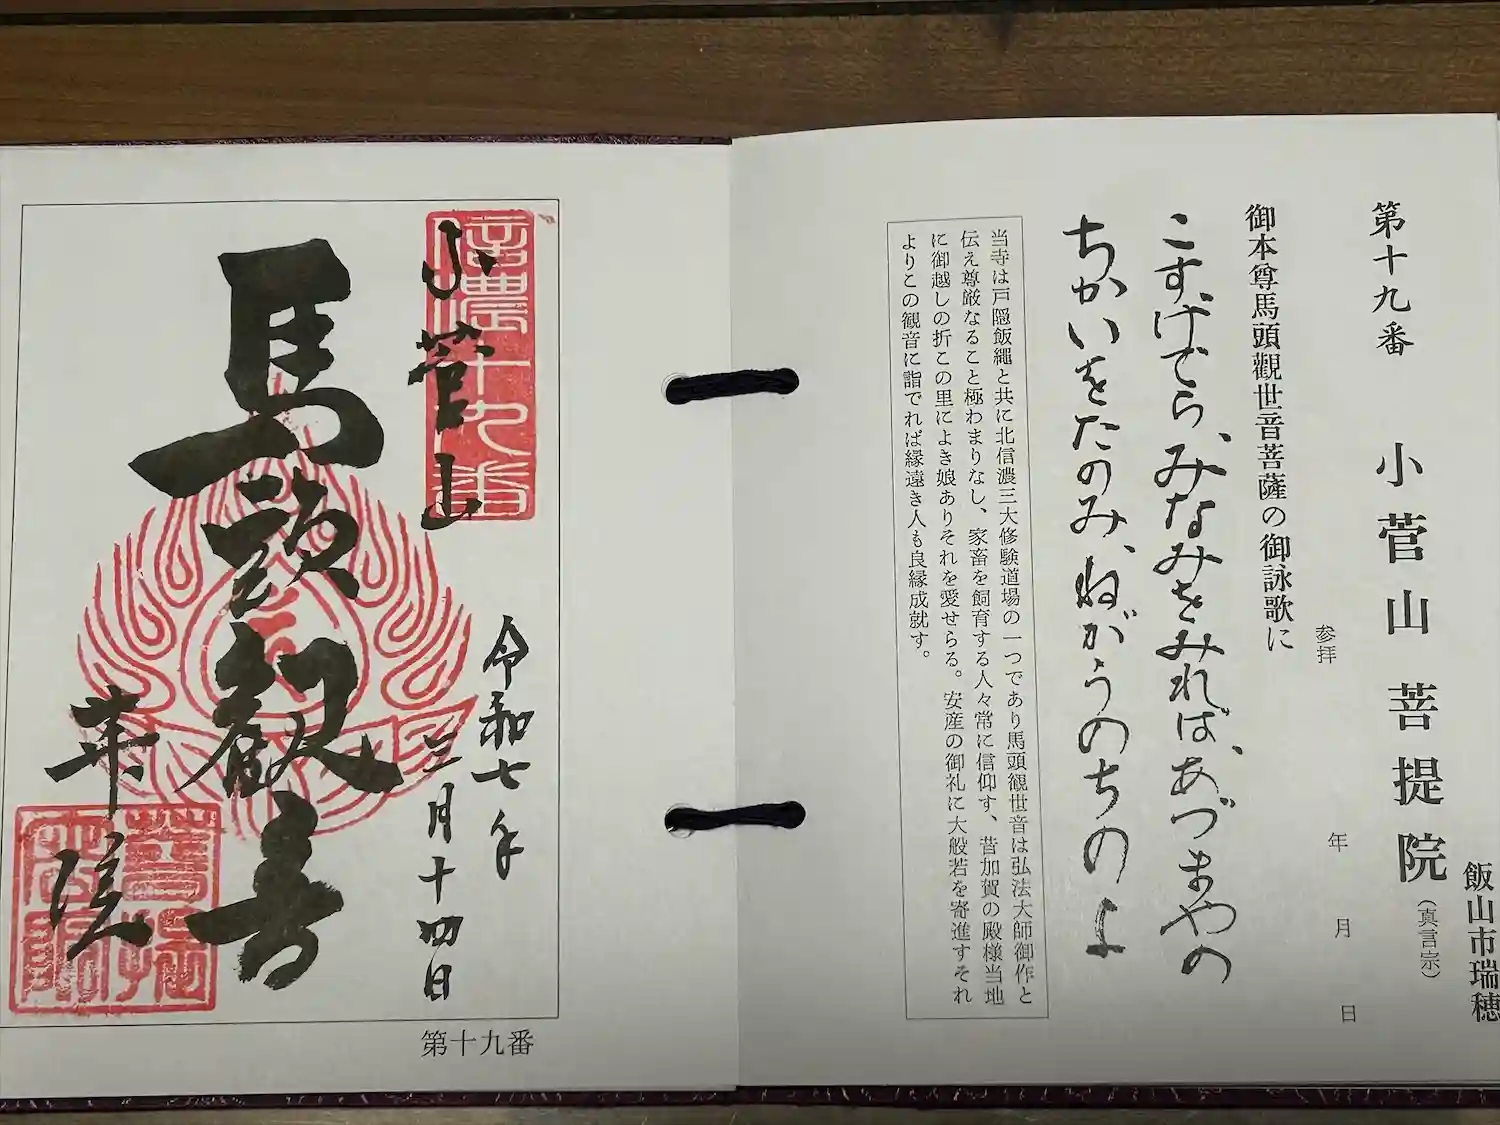 飯山市瑞穂
第十九番 小菅山 菩提院 (真言宗)
参拝 年 月 日
御本尊馬頭觀世音菩薩の御詠歌に
こすげでら、みなみをみれば、あづまやの
ちかいをたのみ、ねがうのちのよ
当寺は戸隠飯繩と共に北信濃三大修験道場の一つであり馬頭観世音は弘法大師御作と
伝え尊厳なること極わまりなし、家畜を飼育する人々常に信仰す、昔加賀の殿様当地
に御越しの折この里によき娘ありそれを愛せらる。安産の御礼に大般若を寄進すそれ
よりこの観音に詣でれば縁遠き人も良縁成就す。
信濃十九番
小菅山
令和七年
三月十四日
馬頭観音
院
第十九番